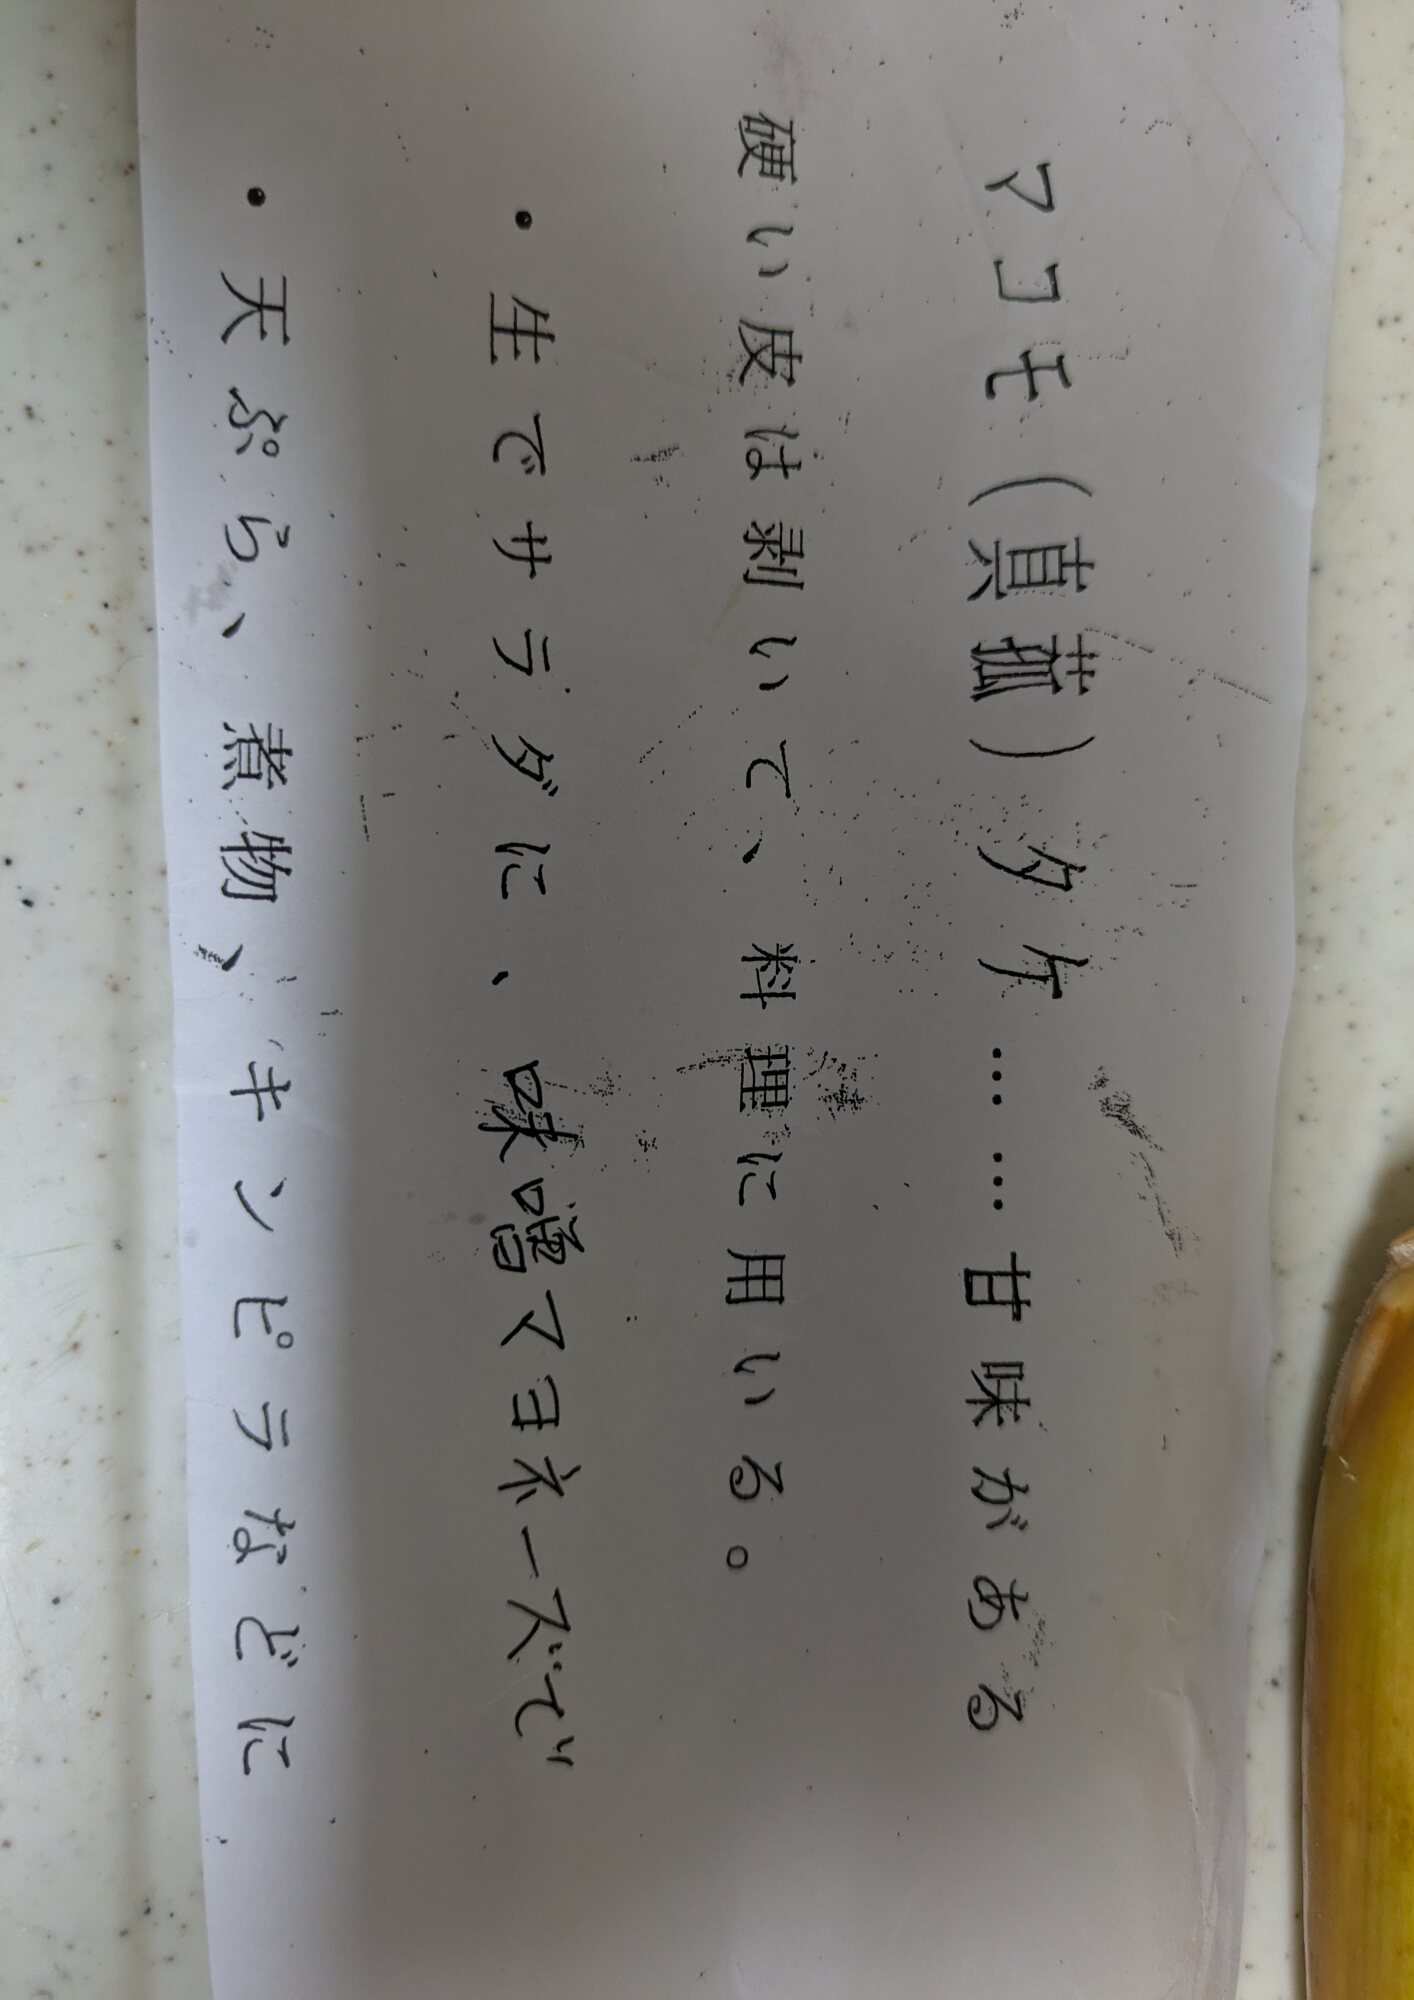 マコモ(真菰)タケ……甘味がある
硬い皮は剥いて、料理に用いる。
・生でサラダに、味噌マヨネーズで
・天ぷら、煮物、キンピラなどに